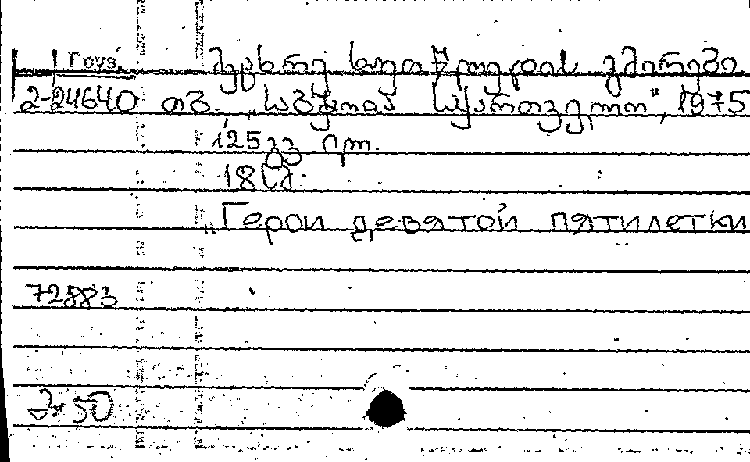 Груз. მეცხრე ხუთწლედის გმირები.
2-24640 თბ. „საბჭოთა საქართველო“, 1975
125გვ ილ.
18სმ.
„Герои девятой пятилетки
72883
50